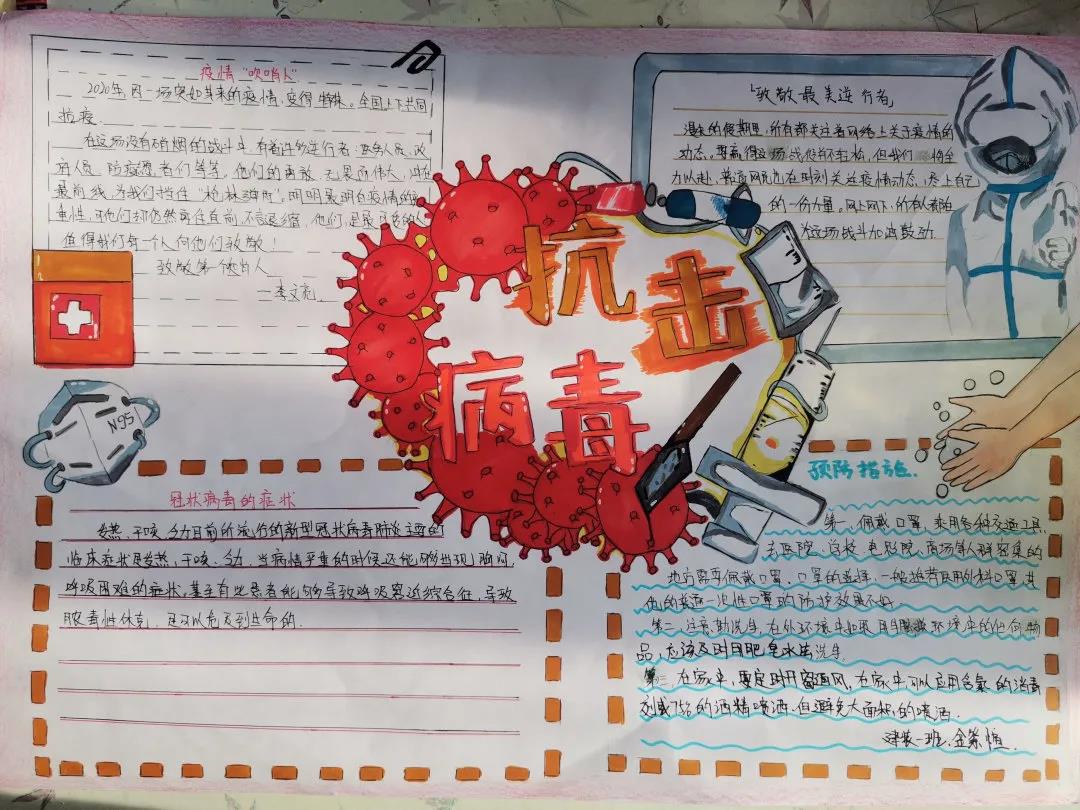 疫情“吹哨人”
2020年,因一场突如其来的疫情,变得特殊。全国上下共同
抗疫.
在这场没有硝烟的战斗中,有着许多逆行者:医务人员、政
府人员、防疫志愿者们等等,他们的勇敢、无畏而伟人,冲在
最前线,为我们挡住“枪林弹雨”,明明最明白疫情的严
重性,可他们却仍然奔在自前,不言退缩,他们,是最可爱的人
值得我们每一个人向他们致敬!
致敬第一个吹哨人
—李文亮
「致敬最美逆行者」
漫长的假期里,所有都关注着网络上关于疫情的
动态。要赢得这场战役并不轻松,但我们 将全
力以赴,普通网民也在时刻关注疫情动态,尽上自己
的一份力量。网上网下,所有人都在
为这场战斗加油鼓劲.
抗击
病毒
N95
冠状病毒的症状
发热、干咳、乏力目前所流行的新型冠状病毒肺炎主要的
临床症状是发热,干咳、乏力,当病情严重的时候还能够出现胸闷,
呼吸困难的症状,甚至有些患者能够导致呼吸窘迫综合征,导致
脓毒性休克,是可以危及到生命的.
预防措施.
第一,佩戴口罩,乘用各种交通工具,
去医院、学校、电影院、商场等人群密集的
地方需要佩戴口罩、口罩的选择,一般推荐医用外科口罩,其
他的普通一次性口罩的防护效果不好.
第二,注意勤洗手,在外环境中如果用手触碰环境中的任何物
品,应该及时用肥皂水法洗手,
第三,在家中,要定时开窗通风,在家中可以应用含氯的消毒
剂或75%的酒精喷洒,但避免大面积的喷洒.
建装一班.金